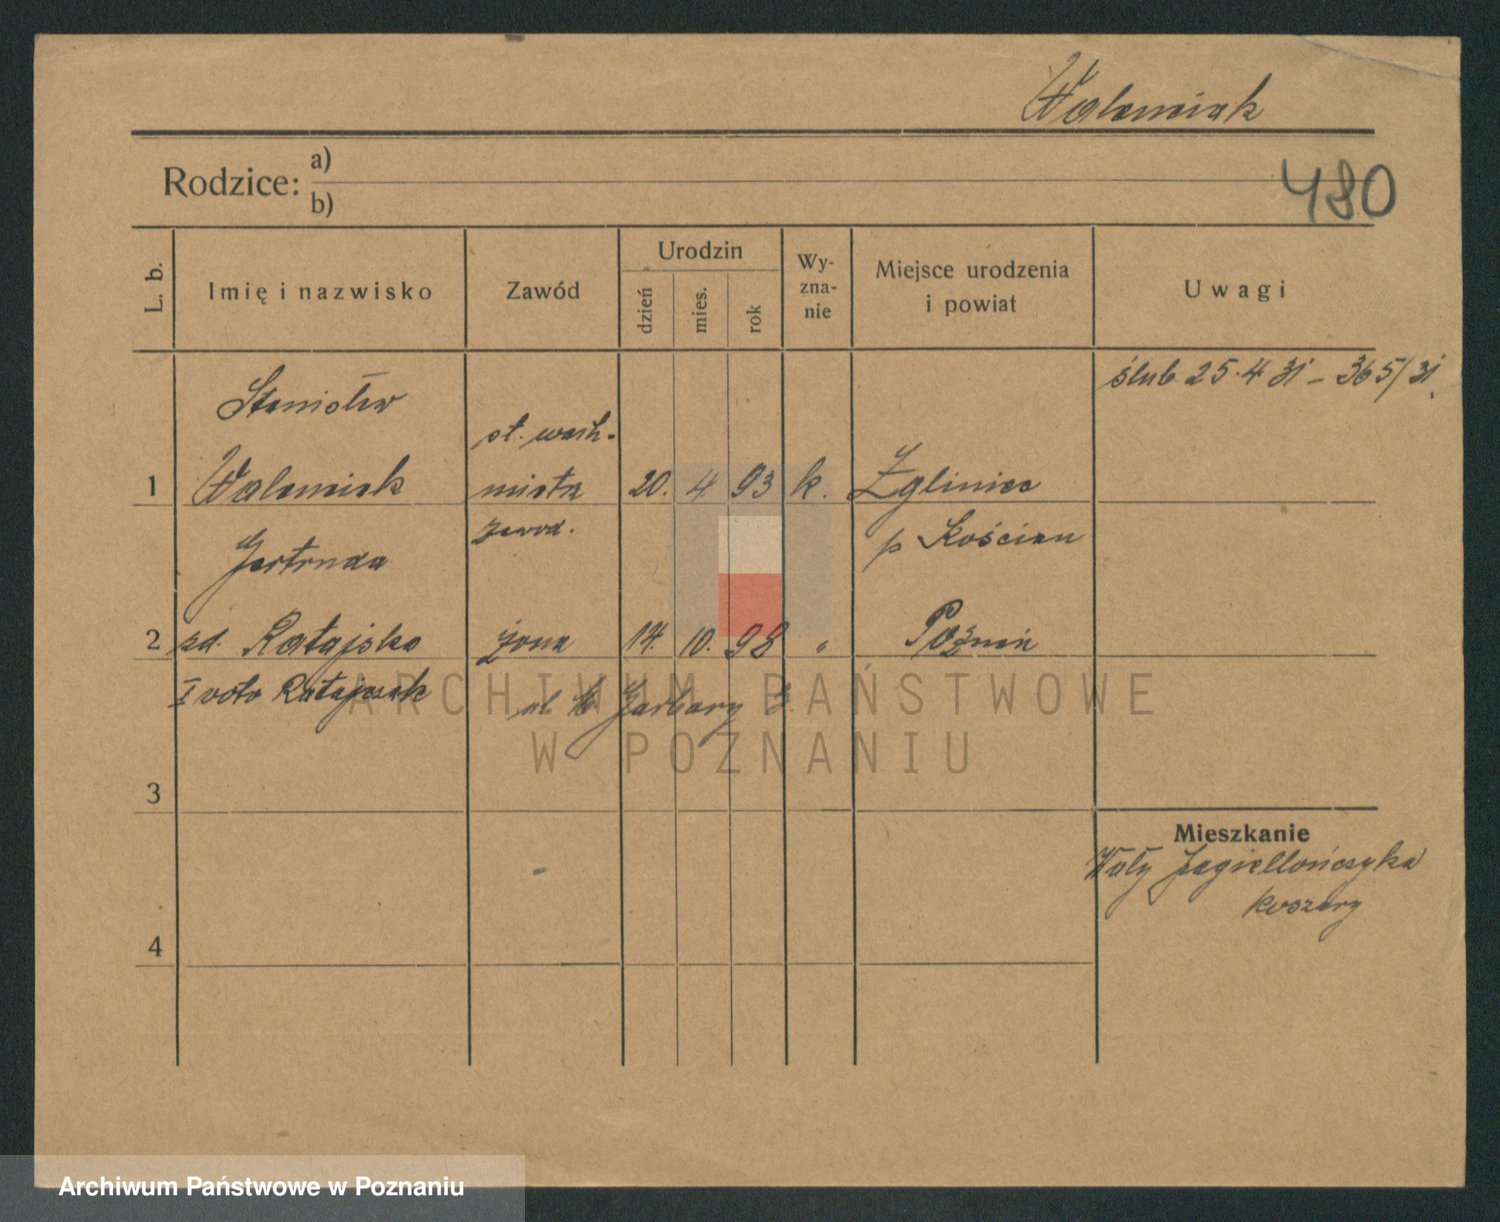 Walemciak
480
Rodzice: a)
b)
L. b.
Imię i nazwisko
Zawód
Urodzin
dzień
mies.
rok
Wy-
zna-
nie
Miejsce urodzenia
i powiat
Uwagi
ślub 25.4 31 - 365/31.
Stanisław
st. wach-
1 Walemciak mistrz 20. 4 93 k. Zgliniec
zawod.
p Kościan
Gertruda
2 zd. Ratajska żona 14. 10. 98 " Poznań
I voto Ratajczak ul Garbary 3
3
Mieszkanie
Wały Jagiellończyka
koszary
4
ARCHIWUM PAŃSTWOWE
W POZNANIU
Archiwum Państwowe w Poznaniu